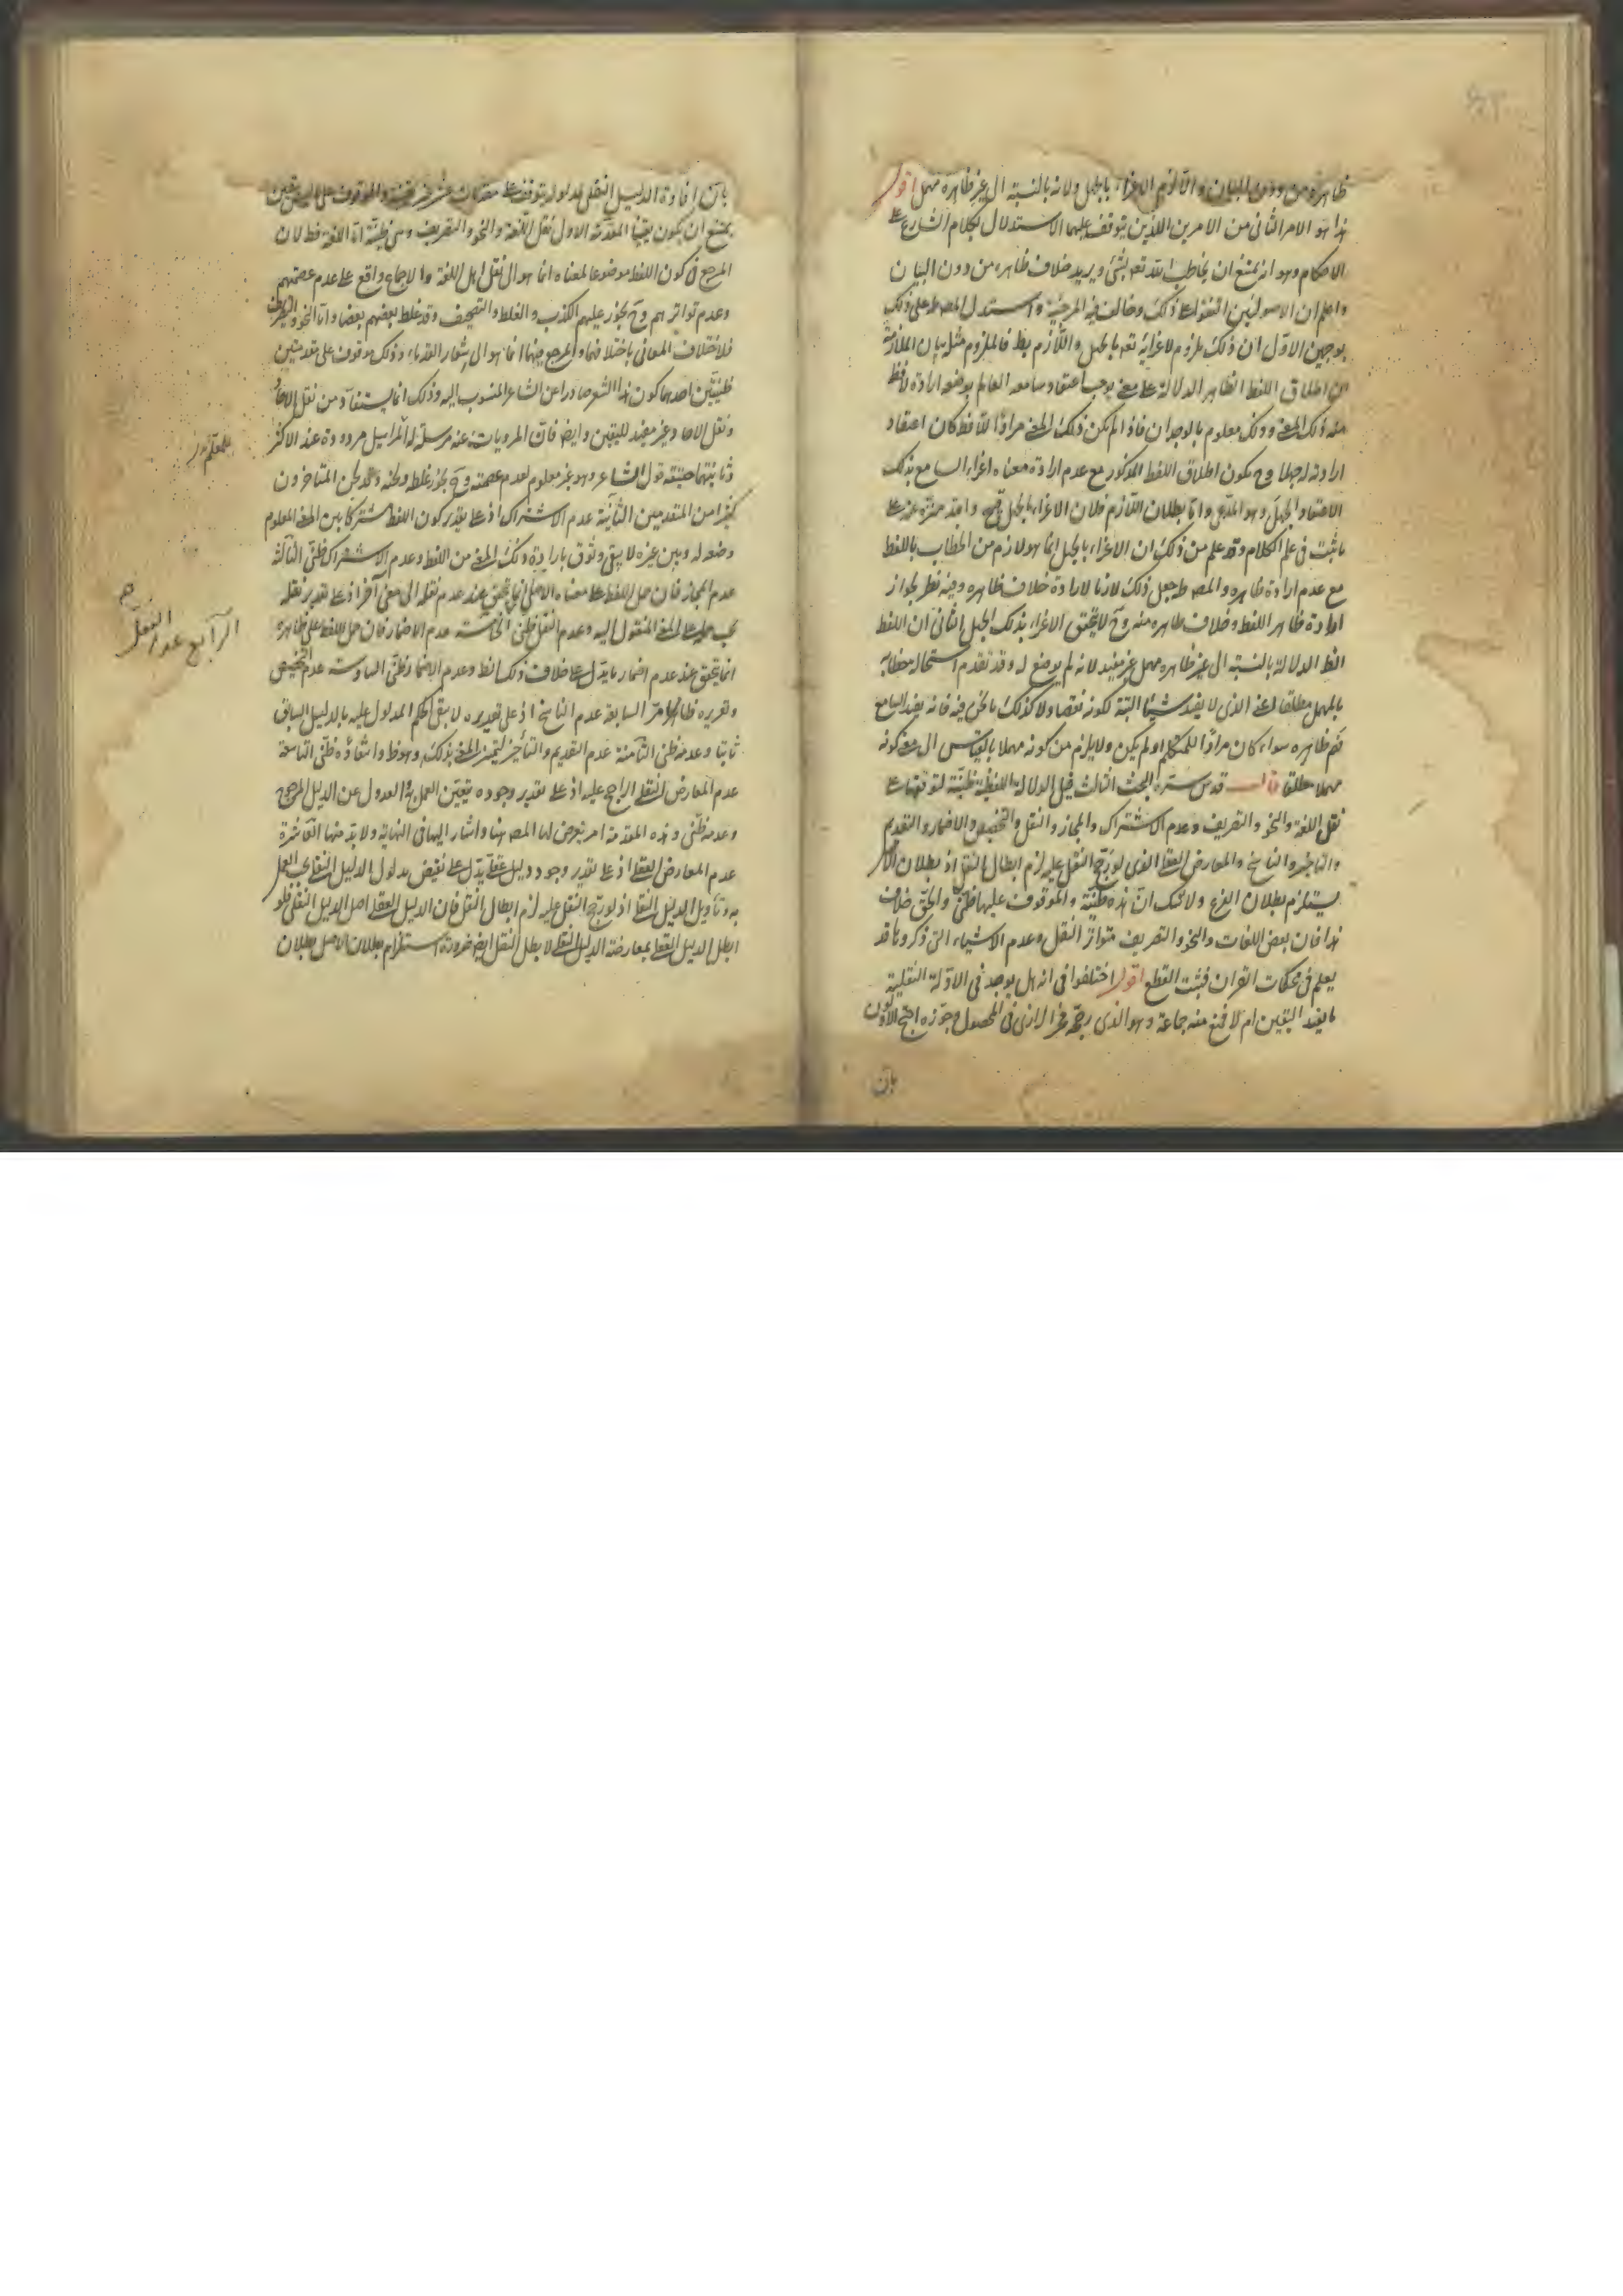 ظاهره من دون البيان و الا لزم الاغراء بالجهل و لانه بالنسبة الى غير ظاهره مهمل اقول
هذا هو الامر الثانى من الامرين اللذين يتوقف عليهما الاستدلال بكلام الشارع على
الاحكام وهو انه يمتنع ان يخاطب الله تعه بشئ و يريد خلاف ظاهره من دون البيان
واعلم ان الاصوليين اتفقوا على ذلك وخالف فيه المرجئة واستدل المصط على ذلك
بوجهين الاول ان ذلك ملزوم لاغرائه تعه بالجهل واللازم بط فالملزوم مثله بيان الملازمة
ان اطلاق اللفظ الظاهر الدلالة على معنى يوجب اعتقاد سامعه العالم بوضعه ارادة لافظه
منه ذلك المعنى وذلك معلوم بالوجدان فاذا لم يكن ذلك المعنى مرادا للافظ كان اعتقاد
ارادته له جهلا وح يكون اطلاق اللفظ المذكور مع عدم ارادة معناه اغراء السامع بذلك
الاعتقاد الجهل وهو المدعى واما بطلان اللازم فلان الاغراء بالجهل قبيح والله منزه عنه على
ما ثبت فى علم الكلام وقد علم من ذلك ان الاغراء بالجهل انما هو لازم من الخطاب باللفظ
مع عدم ارادة ظاهره والمصط جعل ذلك لازما لارادة خلاف ظاهره وفيه نظر لجواز
ارادة ظاهر اللفظ وخلاف ظاهره منه وح لا يتحقق الاغراء بذلك الجهل الثانى ان اللفظ
الظ الدلالة بالنسبة الى غير ظاهره مهمل غير مفيد لانه لم يوضع له وقد تقدم استحالة خطابه
بالمهمل مطلقا اعنى الذى لا يفيد شيئا البتة لكونه نقصا ولا كذلك ما نحن فيه فانه يفيد السامع
فهم ظاهره سواء كان مرادا للمتكلم او لم يكن ولا يلزم من كونه مهملا بالقياس الى معنى كونه
مهملا مطلقا قال قدس سره البحث الثالث قيل الدلالة اللفظية ظنية لتوقفها على
نقل اللغة والنحو والتصريف وعدم الاشتراك والمجاز والنقل والتخصيص والاضمار والتقديم
والتاخير والناسخ والمعارض العقلى الذى لو رجح النقل عليه لزم ابطال النقل اذ بطلان الاصل
يستلزم بطلان الفرع ولا شك ان هذه ظنية والموقوف عليها ظنى والحق خلاف
هذا فان بعض اللغات والنحو والتصريف متواتر النقل وعدم الاشياء التى ذكروها قد
يعلم فى محكمات القران فيثبت القطع اقول اختلفوا فى انه هل يوجد فى الادلة النقلية
ما يفيد اليقين ام لا فمنع منه جماعة وهو الذى رجحه فخر الرازى فى المحصول وجوزه احتج الاولون
بان
بان افادة الدليل النقلى لمدلوله يتوقف على مقدمات عشر غير يقينية والموقوف على غير اليقين
يمتنع ان يكون يقينيا المقدمة الاولى نقل اللغة والنحو والتصريف وهى ظنية اما اللغة فظ لان
المرجع فى كون اللفظ موضوعا لمعناه انما هو الى نقل اهل اللغة والاجماع واقع على عدم عصمتهم
وعدم تواترهم وح يجوز عليهم الكذب والغلط والتصحيف وقد غلط بعضهم بعضا واما النحو والتصريف
فلاختلاف المعانى باختلافهما والمرجع فيهما انما هو الى اشعار القدماء وذلك موقوف على مقدمتين
ظنيتين احدهما كون هذا الشعر صادرا عن الشاعر المنسوب اليه وذلك انما يستفاد من نقل الاحاد
ونقل الاحاد غير مفيد لليقين وايضا فان المرويات عنه مرسلة والمراسيل مردودة عند الاكثر
وثانيتهما حقيقة قول الشاعر وهو غير معلوم لعدم عصمته وح يجوز غلطه ولحنه وقد لحن المتاخرون
كثيرا من المتقدمين الثانية عدم الاشتراك اذ على تقدير كون اللفظ مشتركا بين المعنى المعلوم
وضعه له وبين غيره لا يبقى وثوق بارادة ذلك المعنى من اللفظ وعدم الاشتراك ظنى الثالثة
عدم المجاز فان حمل اللفظ على معناه الاصلى انما يتحقق عند عدم نقله الى معنى آخر اذ على تقدير نقله
يجب حمله على المعنى المنقول اليه وعدم النقل ظنى الخامسة عدم الاضمار فان حمل اللفظ على ظاهره
انما يتحقق عند عدم اضمار ما يدل على خلاف ذلك الظ وعدم الاضمار ظنى السادسة عدم التخصيص
وتقريره ظاهر مما مر السابعة عدم الناسخ اذ على تقديره لا يبقى الحكم المدلول عليه بالدليل السابق
ثابتا وعدمه ظنى الثامنة عدم التقديم والتأخير لتغير المعنى بذلك وهو ظ وانتفاؤه ظنى التاسعة
عدم المعارض النقلى الراجح عليه اذ على تقدير وجوده يتعين العمل به والعدول عن الدليل المرجوح
وعدمه ظنى وهذه المقدمة لم يتعرض لها المصط هنا واشار اليها فى النهاية ولا بد منها العاشرة
عدم المعارض العقلى اذ على تقدير وجود دليل عقلى يدل على نقيض مدلول الدليل النقلى يجب العمل
به وتأويل الدليل النقلى اذ لو رجح النقل عليه لزم ابطال النقل فان الدليل العقلى اصل الدليل النقلى فلو
ابطل الدليل العقلى بمعارضة الدليل النقلى لا بطل النقل ايضا ضرورة استلزام بطلان الاصل بطلان
الرابع عدم النقل